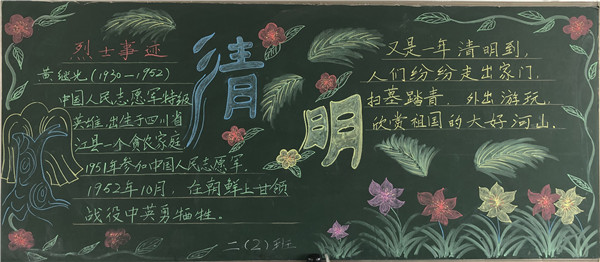 烈士事迹
黄继光(1930—1952)
中国人民志愿军特级
英雄.出生于四川省
江县一个贪农家庭
1951年参加中国人民志愿军.
1952年10月，在朝鲜上甘领
战役中英勇牺牲。
清明
又是一年清明到，
人们纷纷走出家门，
扫墓踏青，外出游玩，
欣赏祖国的大好河山。
二(2)班